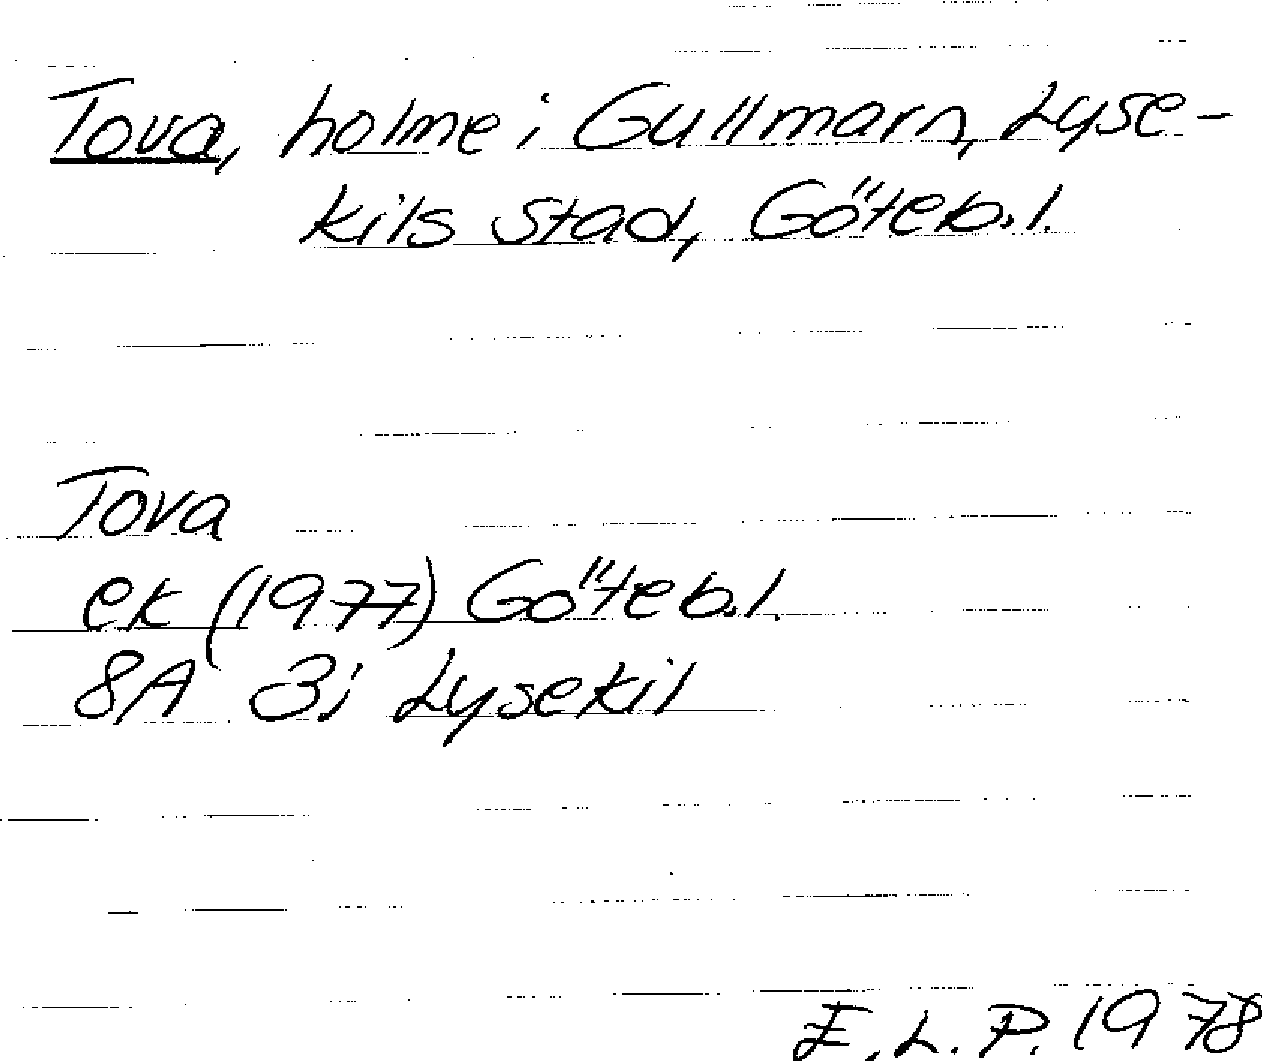 Tova, holme i Gullmarn, Lyse-
kils stad, Göteb.l.
Tova
ek (1977) Göteb.l.
8A 3i Lysekil
E.L.P. 1978